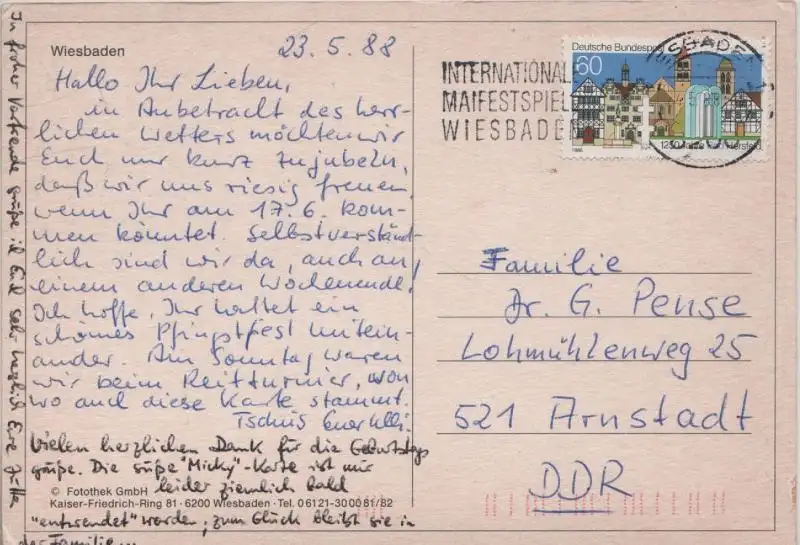 Wiesbaden
23.5.88
Hallo Ihr Lieben,
in Anbetracht des herr-
lichen Wetters möchten wir
Euch nur kurz zujubeln,
daß wir uns riesig freuen,
wenn Ihr am 17.6. kom-
men könntet. Selbstverständ-
lich sind wir da, auch an
einem anderen Wochenende.
Ich hoffe, Ihr hattet ein
schönes Pfingstfest mitein-
ander. Am Sonntag waren
wir beim Reitturnier, von
wo auch diese Karte stammt.
Tschüs Euer Uli.
Vielen herzlichen Dank für die Geburtstags
grüße. Die süße "Micky"-Karte ist mir
leider ziemlich bald
"entwendet" worden, zum Glück bleibt sie in
der Familie
In froher Vorfreude grüße ich Euch sehr herzlich Eure Jutta
© Fotothek GmbH
Kaiser-Friedrich-Ring 81 · 6200 Wiesbaden · Tel. 06121-30081/82
INTERNATIONAL
MAIFESTSPIEL
WIESBADEN
Deutsche Bundespost
60
1250 Jahre Bad Hersfeld
SBADEN
Familie
Dr. G. Pense
Lohmühlenweg 25
521 Arnstadt
DDR